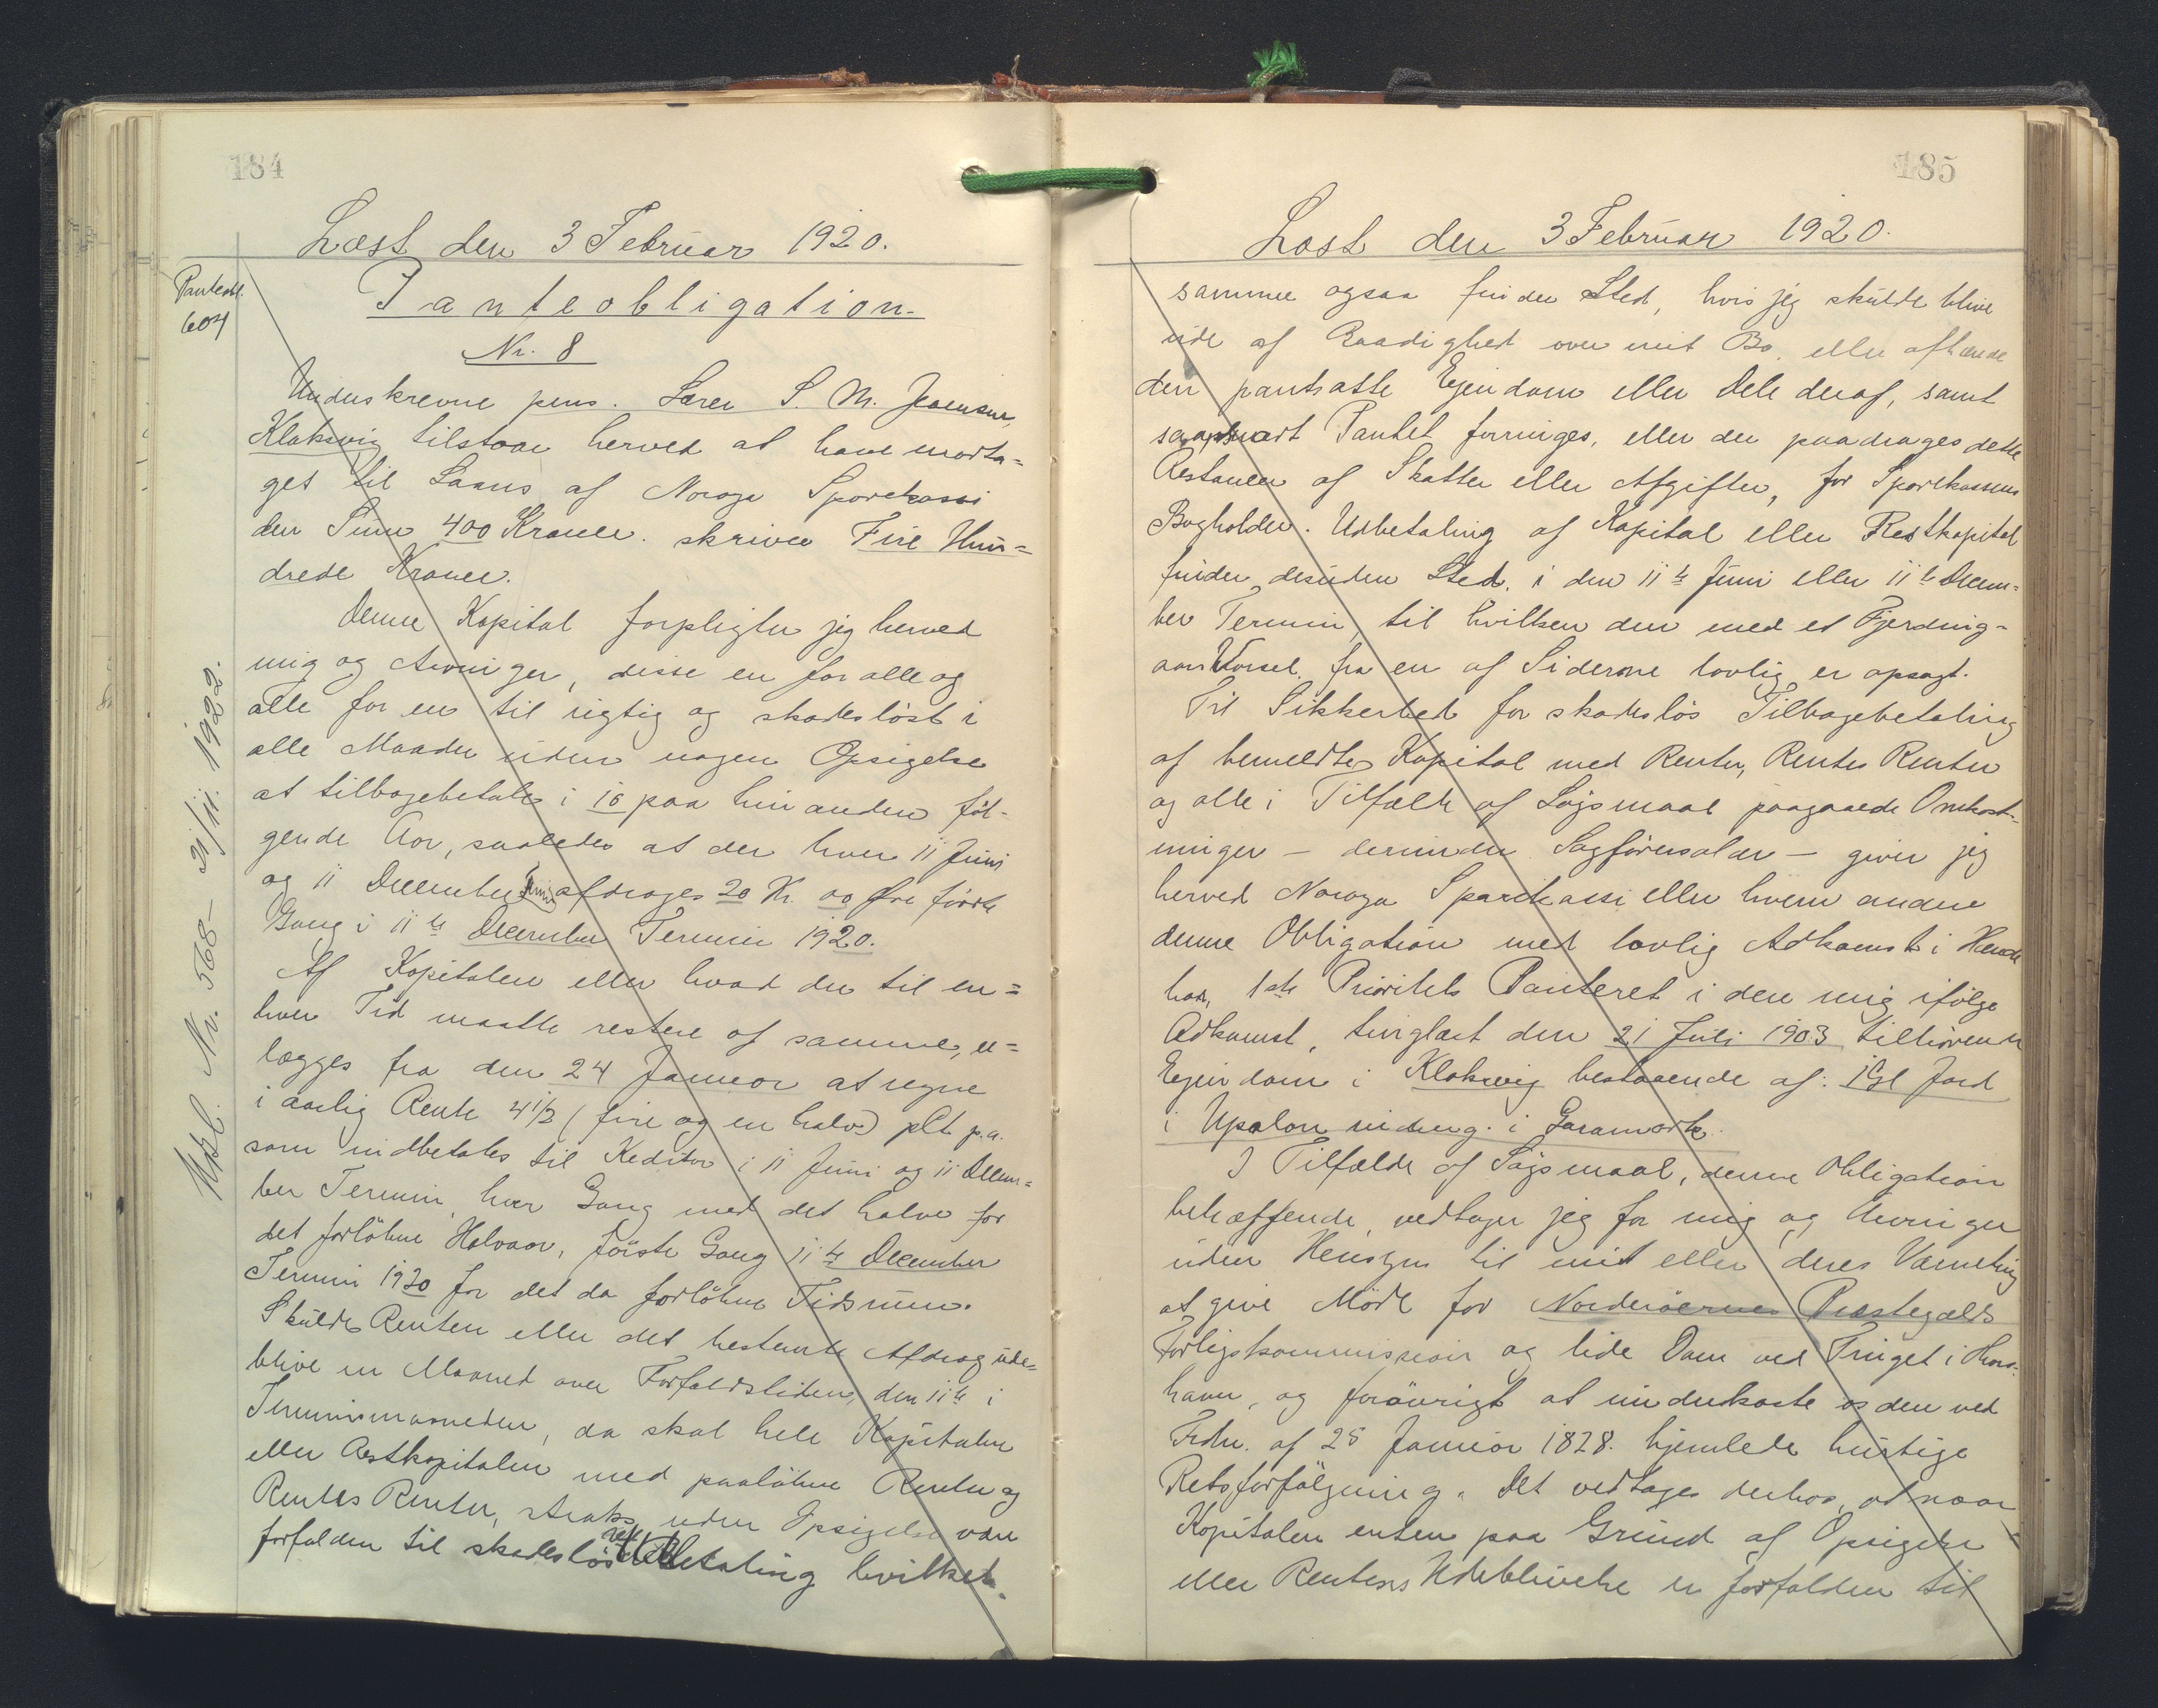 184
Læst den 3 Februar 1920.
Panteobl.
604
Panteobligation.
Nr. 8
Underskrevne pens. Lærer S. M. Joensen,
Klaksvig tilstaar herved at have modta=
get til Laans af Noroya Sparekassi
den Sum 400 Kroner. skriver Fire Hun=
drede Kroner.
Denne Kapital forpligter jeg herved
mig og Arvinger, disse en for alle og
alle for en til rigtig og skadesløst i
alle Maader uden nogen Opsigelse
at tilbagebetale i 10 paa hinanden føl-
gende Aar, saaledes at der hver 11 Juni
og 11 December Termin afdrages 20 Kr. 00 Øre første
Gang i 11te December Termin 1920.
Af Kapitalen eller hvad der til en=
hver Tid maatte restere af samme, er=
lægges fra den 24 Januar at regne
i aarlig Rente 4 1/2 (fire og en halv) pCt. p.a.
som indbetales til Kreditor i 11 Juni og 11 Decem=
ber Termin, hver Gang med det halve for
det forløbne Halvaar, første Gang 11te December
Termin 1920 for det da forløbne Tidsrum.
Skulde Renten eller det bestemte Afdrag ude=
blive en Maaned over Forfaldstiden, den 11te i
Terminsmaaneden, da skal hele Kapitalen
eller Restkapitalen med paaløbne Renter og
Rentes Renter, straks uden Opsigelse være
forfalden til skadesløs Udbetaling hvilket
Udsl. Nr. 568 - 21/11. 1922.
185
Læst den 3 Februar 1920.
samme ogsaa finder Sted, hvis jeg skulde blive
ude af Raadighed over mit Bo, eller afhænde
den pantsatte Ejendom eller Dele deraf, samt
saasnart Pantet forringes, eller der paadrages dette
Restancer af Skatter eller Afgifter, for Sparekassens
Bogholder. Udbetaling af Kapital eller Restkapital
finder desuden Sted, i den 11te Juni eller 11te Decem=
ber Termin, til hvilken den med et Fjerding=
aars Varsel, fra en af Siderne lovlig er opsagt.
Til Sikkerhed for skadesløs Tilbagebetaling
af bemeldte Kapital med Renter, Rentes Renter
og alle i Tilfælde af Søgsmaal paagaaede Omkost-
ninger - derunder Sagførersalær - giver jeg
herved Noroya Sparikassi eller hvem anden
denne Obligation med lovlig Adkomst i Hænde
har, 1ste Prioritets Panteret i den mig ifølge
Adkomst, tinglæst den 21 Juli 1903 tilhørende
Ejendom i Klaksvig bestaaende af: 1 Gl Jord
i Upsalon nidrug. i Garamørk.
I Tilfælde af Søgsmaal, denne Obligation
betræffende, vedtager jeg for mig og Arvinger
uden Hensyn til mit eller deres Værneting
at give Møde for Norderøernes Præstegælds
Forligskommission og lide Dom ved Tinget i Thors-
havn, og forøvrigt at underkaste os den ved
Frdn. af 25 Januar 1828. hjemlede hurtige
Retsforfølgning. Det vedtages derhos, at naar
Kapitalen enten paa Grund af Opsigelse
eller Rentens Udeblivelse er forfalden til